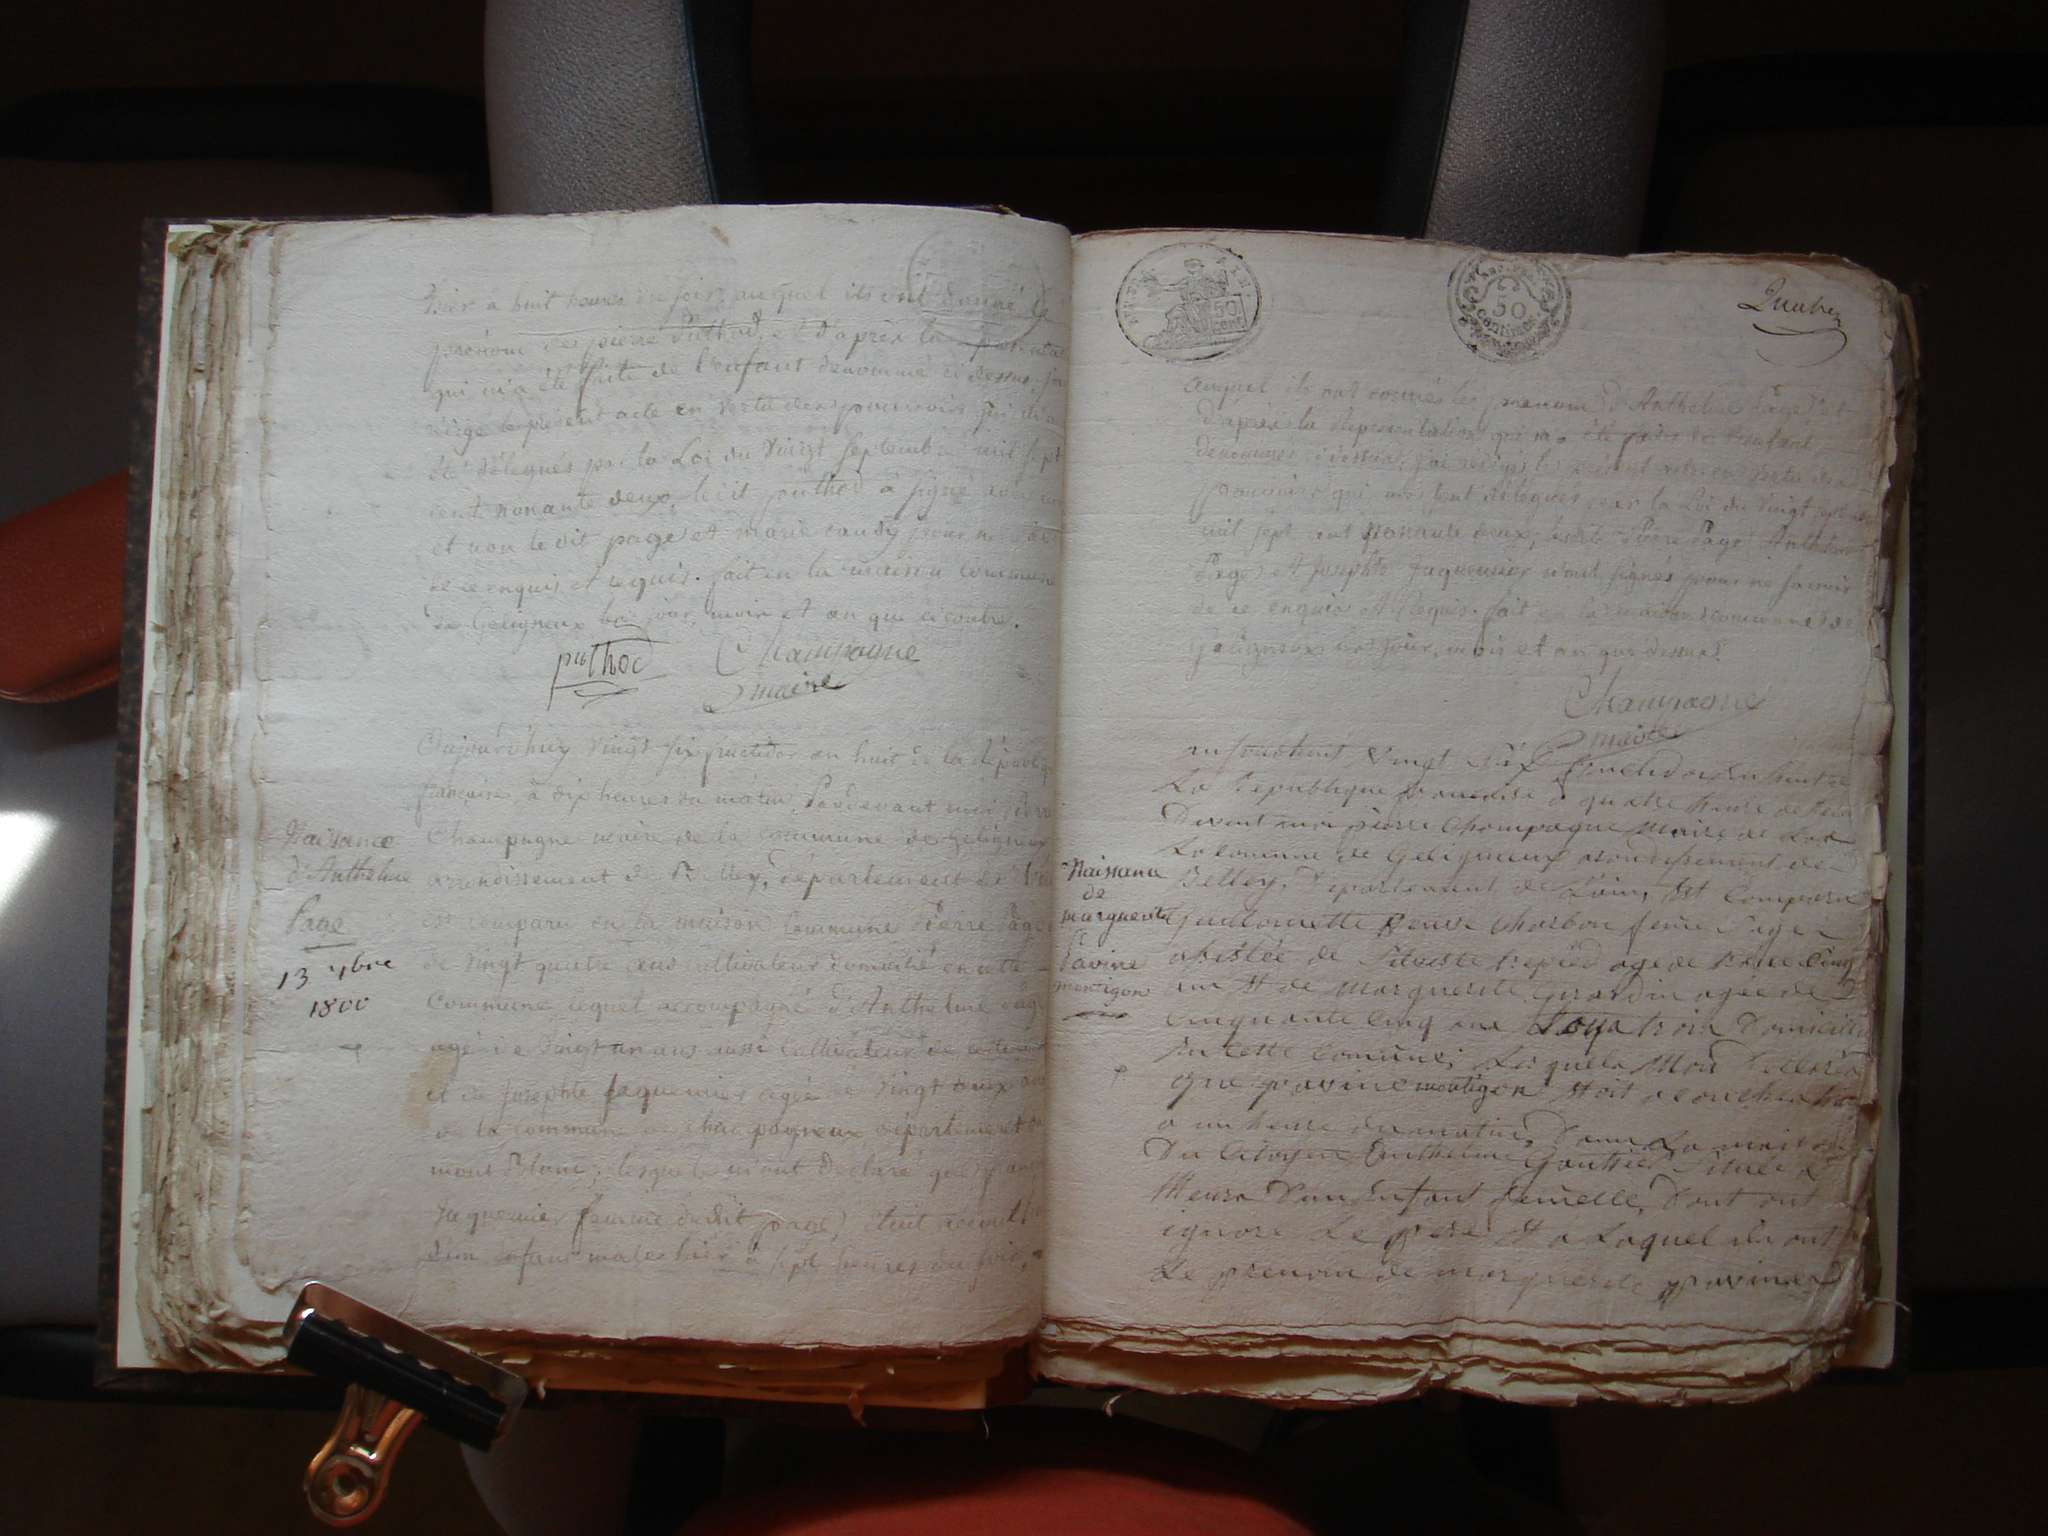 hier à huit heures du soir, auquel ils ont donné le
prénom de pierre Puthod, et d'après la
qui m'a été faite de l'enfant denommé ci dessus, j'ai
rédigé le présent acte en vertu des pouvoirs qui m'ont
été délégués par la Loi du vingt septembre mil sept
cent nonante deux, le cit puthod a signé avec moi
et non le dit page et marie pour ne
de ce enquis et requis. fait en la maison commune
de Geligneux les jour, mois et an que ci contre.
puthod Champagne
maire
Naissance
d'Anthelme
Page
13 7bre
1800
Aujourd'huy vingt six fructidor an huit de la République
française, à dix heures du matin Pardevant moi Pierre
Champagne maire de la commune de Geligneux
arrondissement de Belley, département de l'ain
est comparu en la maison Commune Pierre Page
de vingt quatre ans cultivateur domicilié en cette
Commune lequel accompagné d'Anthelme Page
agé de vingt un ans aussi Cultivateur de cette
et de Josephte Jaquemier agée de vingt deux ans
de la commune de Champagneux département du
mont Blanc, lesquels m'ont declaré que
Jaquemier femme dudit page, étoit accouchée
d'un enfant male hier à sept heures du soir,
Quatre
50
centimes
auquel ils ont donnés les prenom d'Anthelme Page et
d'après la Representation qui m'a été faite de l'enfant
denommé ci dessus, j'ai rédigé le présent acte en vertu des
pouvoirs qui me sont délégués par la Loi du vingt septembre
mil sept cent nonante deux, lesdits Pierre Page Anthelme
Page et Josephte Jaquemier n'ont signés pour ne savoir
de ce enquis et Requis. fait en la maison commune de
Geligneux les jour, mois et an que dessus.
Champagne
maire
Naissance
de
marguerite
Pavine
montigon
aujourdhuit vingt six fructidor en huit de
La Republique francaise a quatre heure de
Devant moi pierre Champagne Maire de
La comune de Geligneux arondissement de
Belley, Departement de Lain, Est Comparu
Charbon feme Pager
assistée de Silvestre age de Cinq
ans et de Marguerite Girardin agée de
Cinquante Cinq ans tous trois Domicilié
En cette Comune, Lesquels Mon Declaré
que pavine montigon etoit acouchée hier
a un heure du matin, Dans La maison
Du Citoyen Enthelme Gauthier Située a
D'un Enfant femelle, Dont ont
ignore Le pere et a Laquel ils ont
Le prenom de marguerite pavine